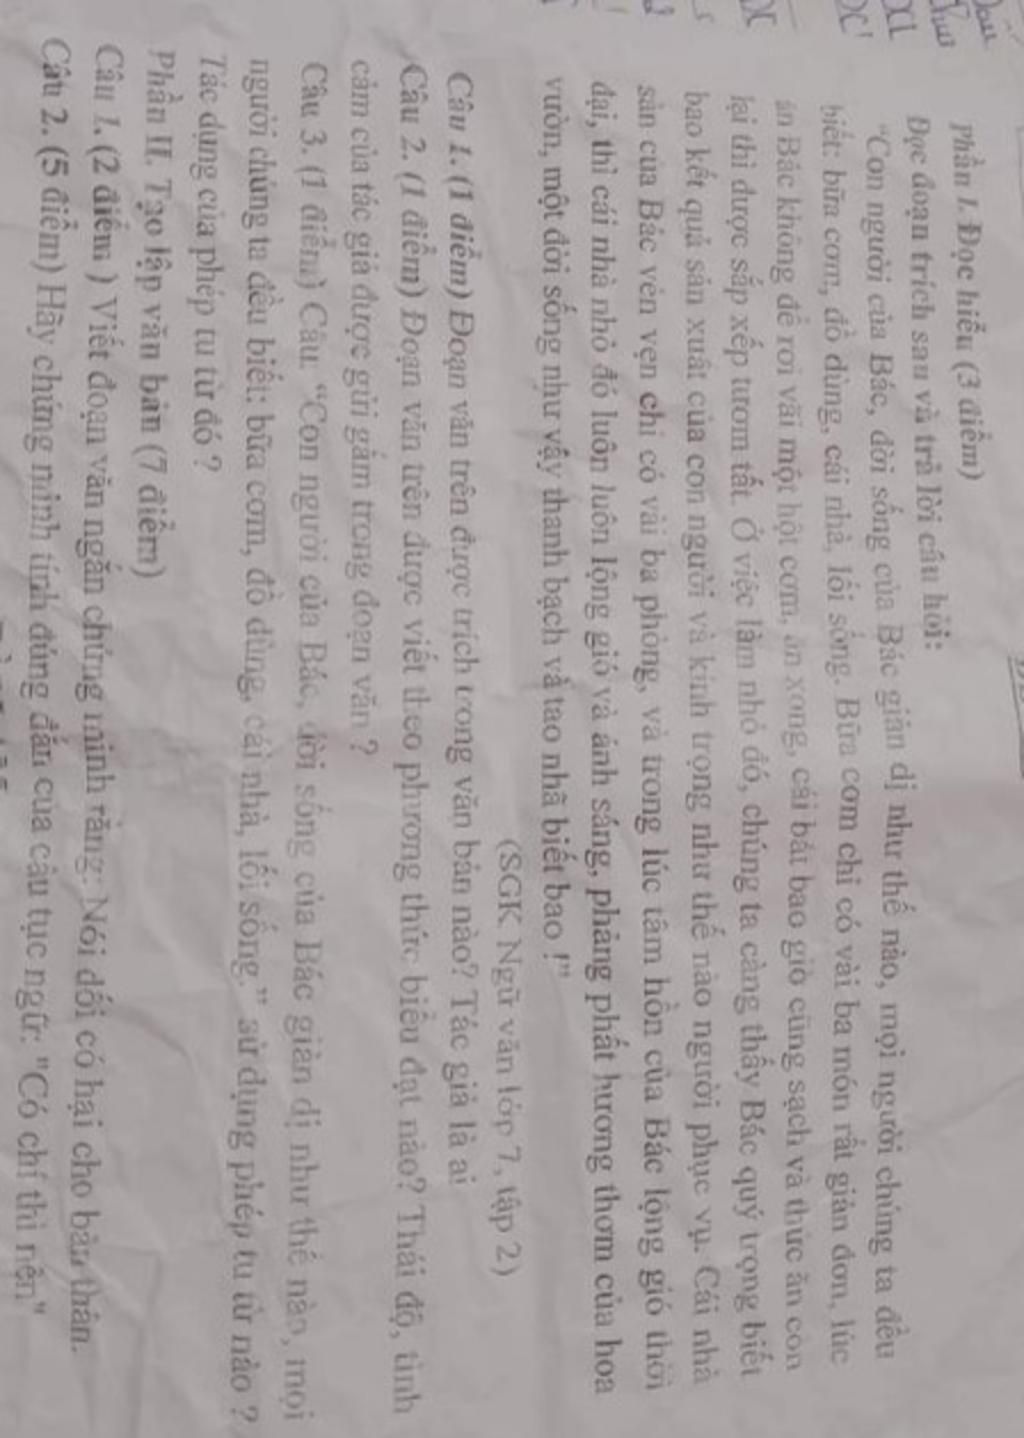 Phần I. Đọc hiểu (3 điểm)
Đọc đoạn trích sau và trả lời câu hỏi:
“Con người của Bác, đời sống của Bác giản dị như thế nào, mọi người chúng ta đều
biết: bữa cơm, đồ dùng, cái nhà, lối sống. Bữa cơm chỉ có vài ba món rất giản đơn, lúc
ăn Bác không để rơi vãi một hột cơm, ăn xong, cái bát bao giờ cũng sạch và thức ăn còn
lại thì được sắp xếp tươm tất. Ở việc làm nhỏ đó, chúng ta càng thấy Bác quý trọng biết
bao kết quả sản xuất của con người và kính trọng như thế nào người phục vụ. Cái nhà
sàn của Bác vẻn vẹn chỉ có vài ba phòng, và trong lúc tâm hồn của Bác lộng gió thời
đại, thì cái nhà nhỏ đó luôn luôn lộng gió và ánh sáng, phảng phất hương thơm của hoa
vườn, một đời sống như vậy thanh bạch và tao nhã biết bao !”
(SGK Ngữ văn lớp 7, tập 2)
Câu 1. (1 điểm) Đoạn văn trên được trích trong văn bản nào? Tác giả là ai
Câu 2. (1 điểm) Đoạn văn trên được viết theo phương thức biểu đạt nào? Thái độ, tình
cảm của tác giả được gửi gắm trong đoạn văn ?
Câu 3. (1 điểm) Câu: “Con người của Bác, đời sống của Bác giản dị như thế nào, mọi
người chúng ta đều biết: bữa cơm, đồ dùng, cái nhà, lối sống.” sử dụng phép tu từ nào ?
Tác dụng của phép tu từ đó ?
Phần II. Tạo lập văn bản (7 điểm)
Câu 1. (2 điểm ) Viết đoạn văn ngắn chứng minh rằng: Nói dối có hại cho bản thân.
Câu 2. (5 điểm) Hãy chứng minh tính đúng đắn của câu tục ngữ: "Có chí thì nên"